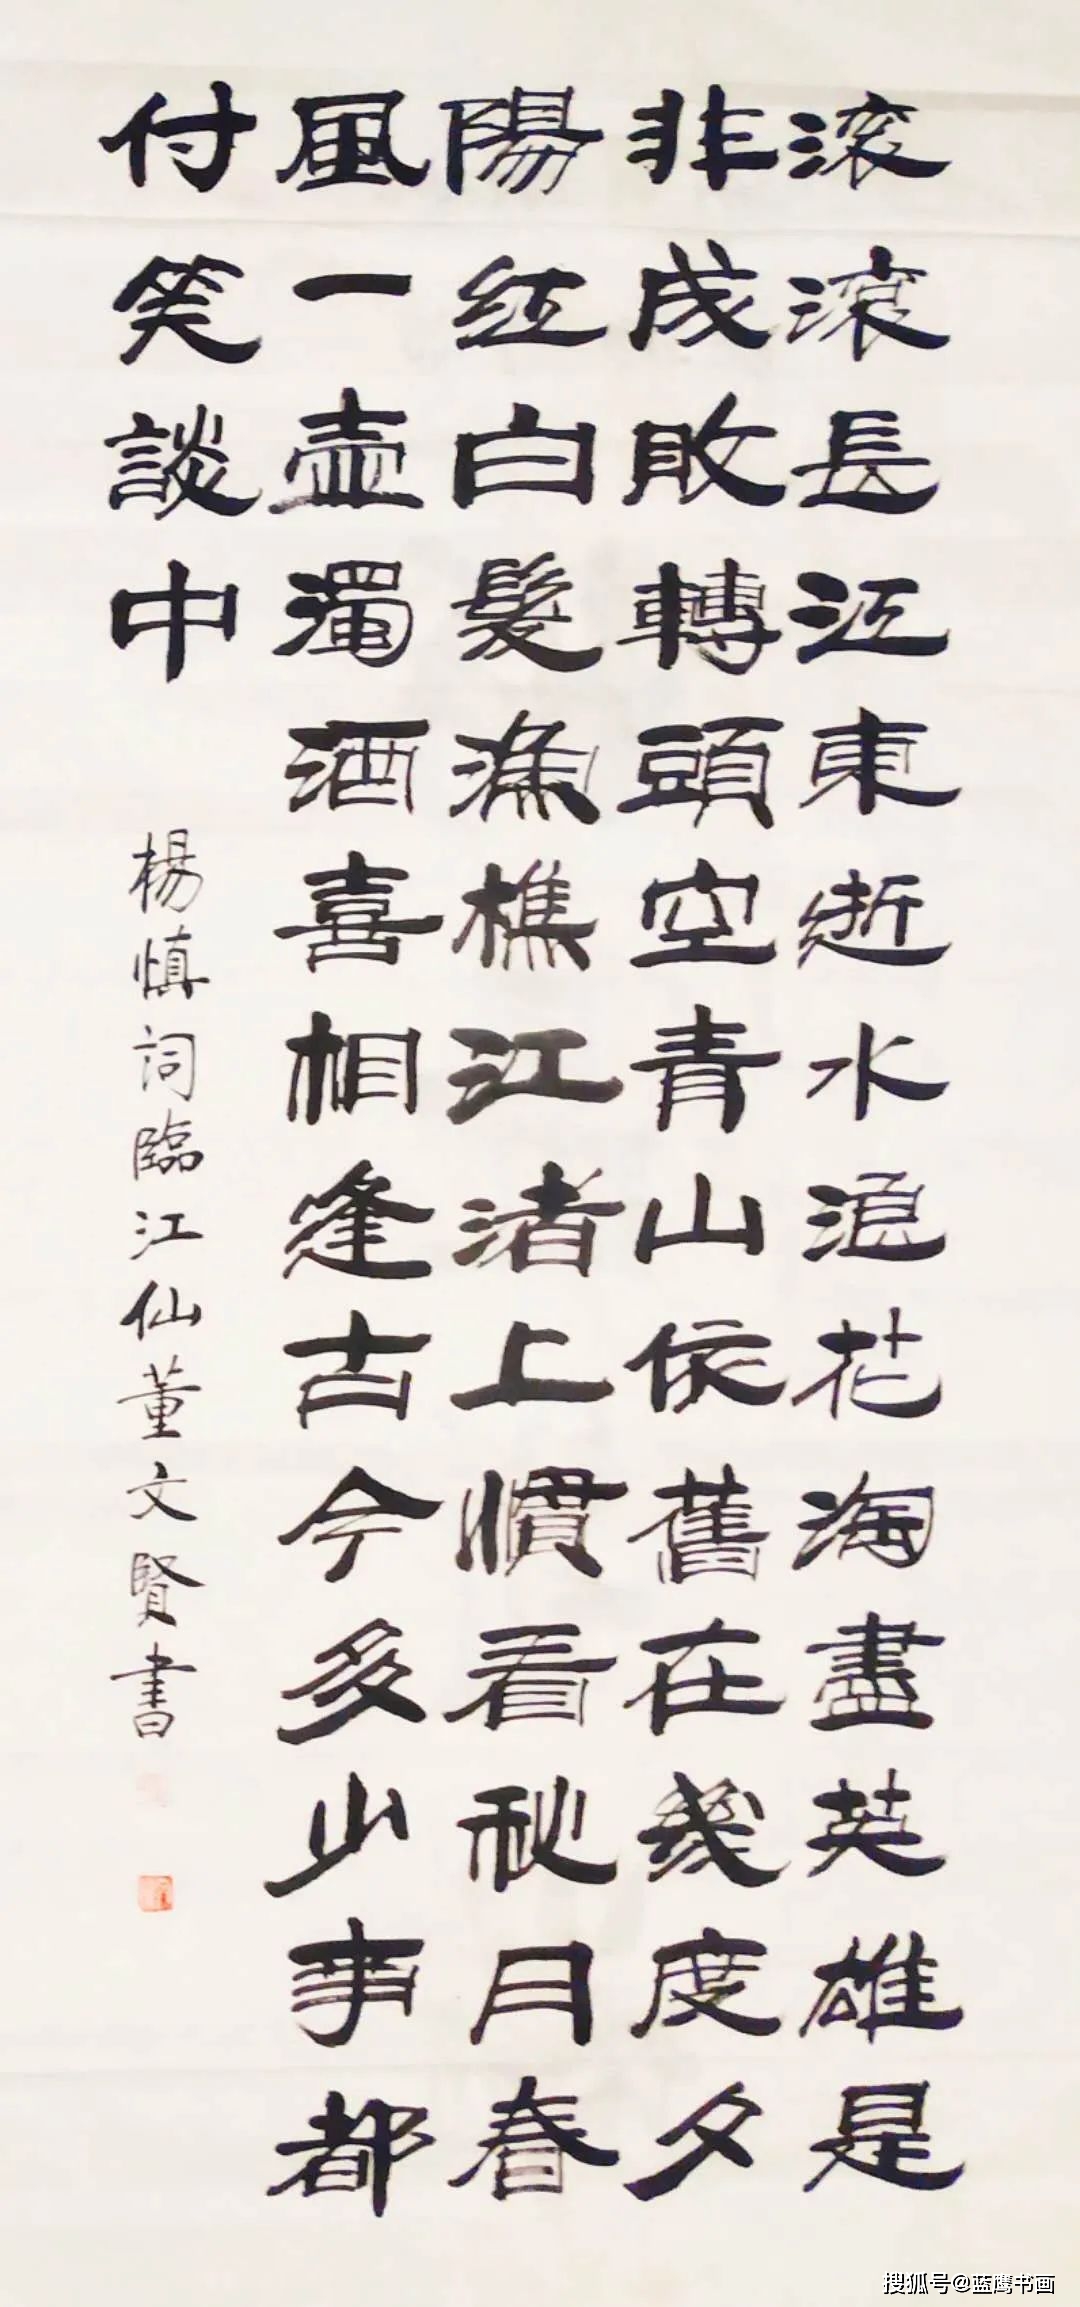 滚滚長江東逝水浪花淘盡英雄是
非成敗轉頭空青山依舊在幾度夕
陽紅白髮漁樵江渚上慣看秋月春
風一壺濁酒喜相逢古今多少事都
付笑談中
楊慎詞臨江仙董文賢書
搜狐号@蓝鹰书画